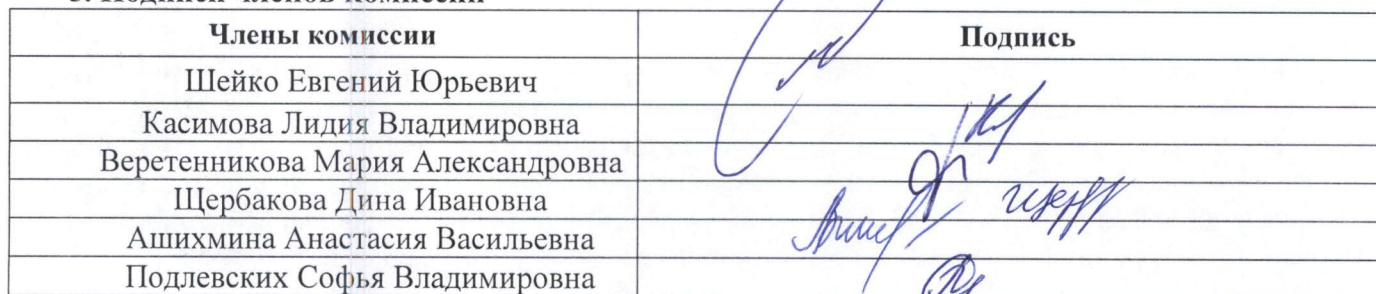 Члены комиссии Подпись
Шейко Евгений Юрьевич
Касимова Лидия Владимировна
Веретенникова Мария Александровна
Щербакова Дина Ивановна
Ашихмина Анастасия Васильевна
Подлевских Софья Владимировна